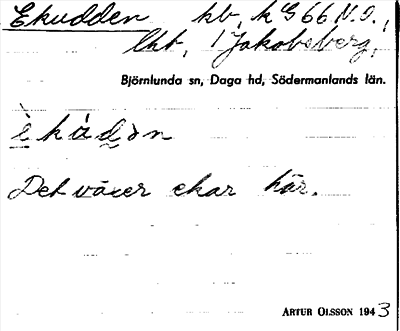 Ekudden kb, k G 66 N.O.,
lht, 1 Jakobsberg,
Björnlunda sn, Daga hd, Södermanlands län.
Det växer ekar här.
ARTUR OLSSON 1943